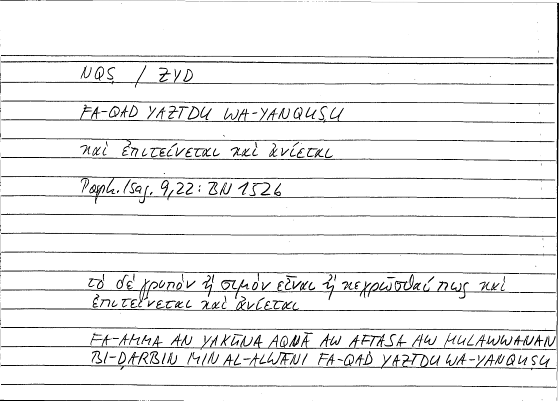 NQṢ / ZYD
FA-QAD YAZĪDU WA-YANQUṢU
καὶ ἐπιτείνεται καὶ ἀνίεται
Porph. Isag. 9,22: BN 1526
τὸ δὲ γρυπὸν ἢ σιμὸν εἶναι ἢ κεχρῶσθαί πως καὶ
ἐπιτείνεται καὶ ἀνίεται
FA-AMMA AN YAKŪNA AQNĀ AW AFṬASA AW MULAWWANAN
BI-ḌARBIN MIN AL-ALWĀNI FA-QAD YAZĪDU WA-YANQUṢU